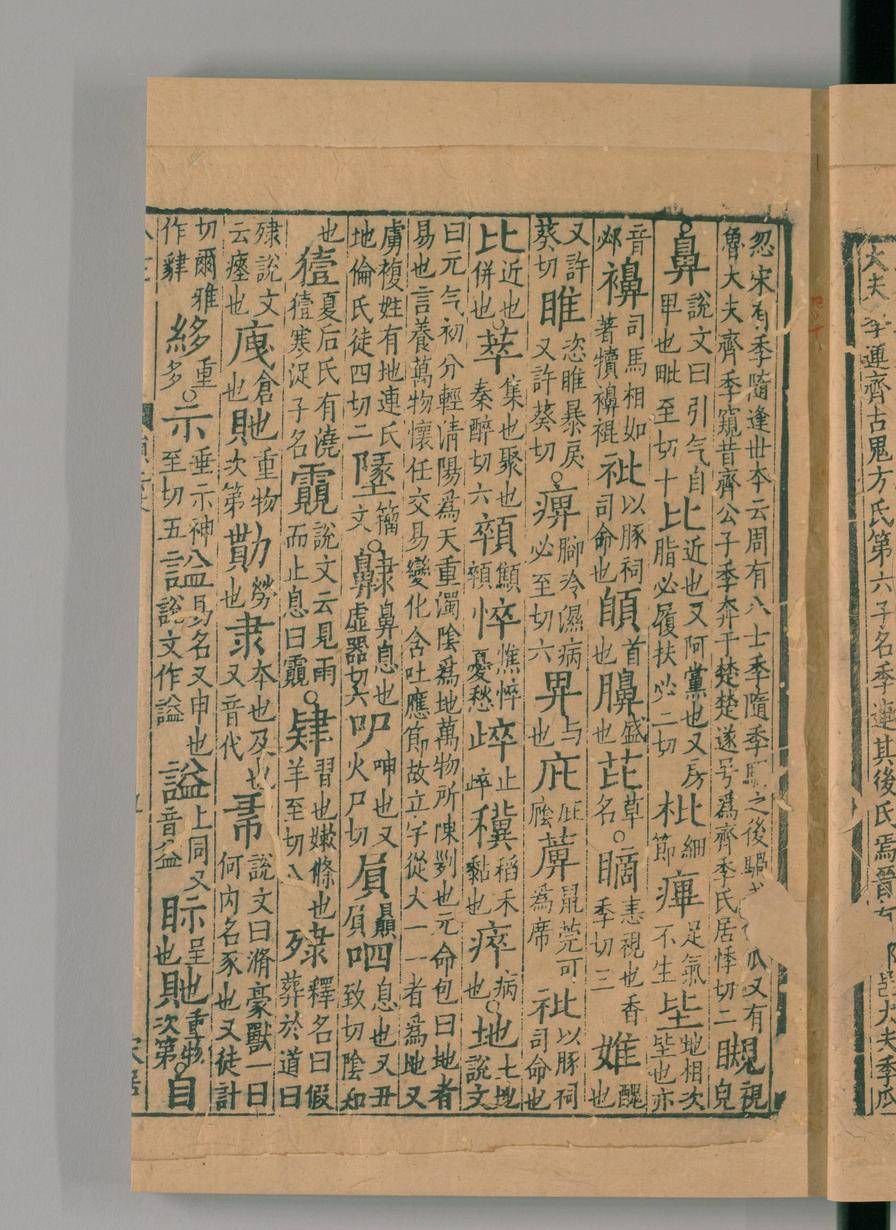 大夫季連齊古鬼方氏第六子名季連其後氏焉晉有邑大夫季瓜
忽宋有季隨逢世本云周有八士季隨季騧之後瓜又有
魯大夫齊季窺昔齊公子季奔于楚楚遂号為齊季氏居悸切二瞡視皃
○鼻說文曰引气自畀也毗至切十比近也又阿黨也又房脂必履扶必二切枇細節痺足氣不生坒地相次坒也亦
音邲襣司馬相如著犢襣裩䃾以豚祠司命也首也盛也芘草名○恚視也香季切三婎醜也
又許葵切睢恣睢暴戾又許葵切○痹腳冷濕病必至切六畀与也庇庇廕萆鼠莞可為席以豚祠司命也
比近也併也○萃集也聚也秦醉切六顇顦顇悴憔悴憂愁踤止䅽稻禾黏也瘁病也○地土地說文
曰元气初分輕清陽爲天重濁陰爲地萬物所陳列也元命包曰地者
易也言養萬物懷任交易變化含吐應節故立字從土一一者爲地又
虜複姓有地連氏地倫氏徒四切二墜籀文○齂鼻息也虛器切六呬呻也又火尸切屓贔屓呬息也又丑致切陰知
也豷夏后氏有澆豷寒浞子名䨳說文云見雨而止息曰䨳○肄習也嫩條也羊至切八殔釋名曰假葬於道曰
殔說文云瘞也廙倉也貤重物次第勩勞也隶本也及也又音代㣇說文曰脩豪獸一曰河內名豕也又徒計
切爾雅作貄䋾重多○示垂示神至切五諡易名又申也說文作謚謚上同又音益眎呈也貤重物次第○自